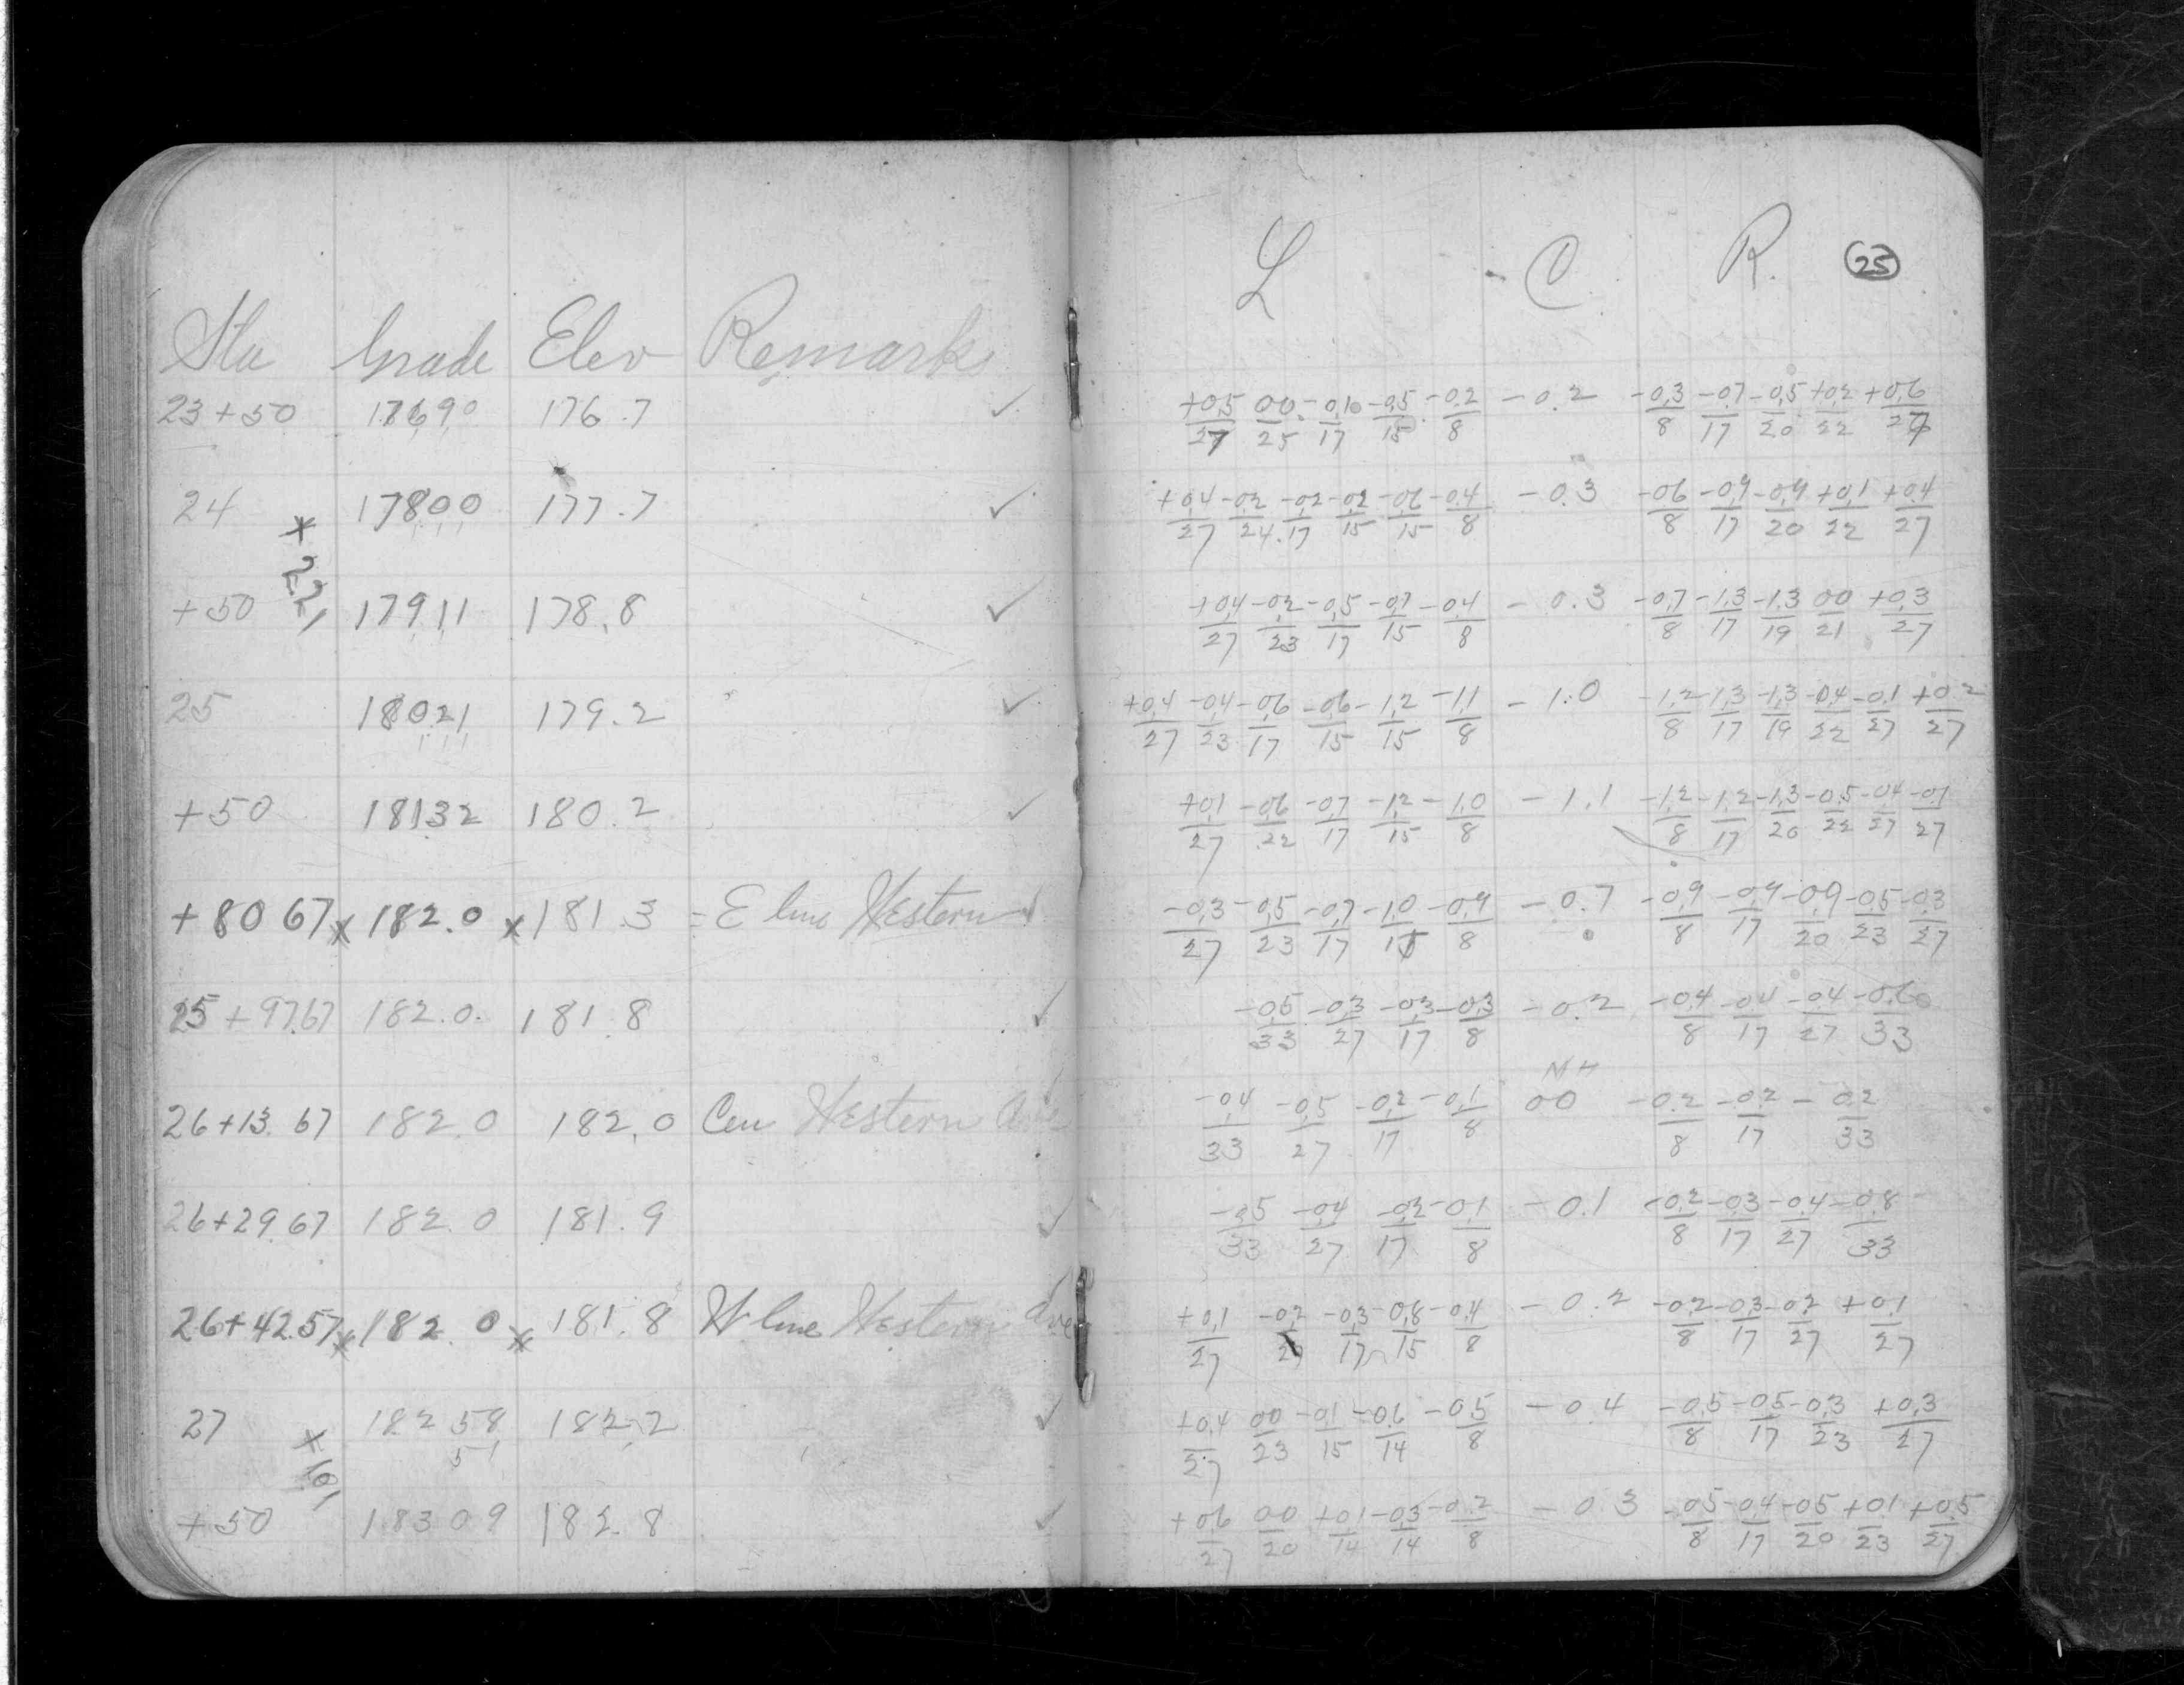 Sta Grade Elev Remarks
23+50 176.90 176.7 ✓
24 178.00 177.7 ✓
+2.21
+50 179.11 178.8 ✓
25 180.21 179.2 ✓
+50 181.32 180.2 ✓
+80 67 x 182.0 x 181.3 = E line Western ✓
25+97.67 182.0. 181.8 ✓
26+13.67 182.0 182.0 Cen Western Ave
26+29.67 182.0 181.9 ✓
26+42.57 x 182.0 x 181.8 W line Western Ave
27 182 58 182.2 ✓
51
+1.01
+50 183 09 182.8 ✓
L C R. 25
+0.5/27 0.0/25 -0.1/17 -0.5/15 -0.2/8 -0.2 -0.3/8 -0.7/17 -0.5/20 +0.2/22 +0.6/27
+0.4/27 -0.2/24 -0.2/17 -0.2/15 -0.6/15 -0.4/8 -0.3 -0.6/8 -0.9/17 -0.9/20 +0.1/22 +0.4/27
+0.4/27 -0.2/23 -0.5/17 -0.7/15 -0.4/8 -0.3 -0.7/8 -1.3/17 -1.3/19 0.0/21 +0.3/27
+0.4/27 -0.4/23 -0.6/17 -0.6/15 -1.2/15 -1.1/8 -1.0 -1.2/8 -1.3/17 -1.3/19 -0.4/22 -0.1/27 +0.2/27
+0.1/27 -0.6/22 -0.7/17 -1.2/15 -1.0/8 -1.1 -1.2/8 -1.2/17 -1.3/20 -0.5/22 -0.4/27 -0.1/27
-0.3/27 -0.5/23 -0.7/17 -1.0/15 -0.9/8 -0.7 -0.9/8 -0.9/17 -0.9/20 -0.5/23 -0.3/27
-0.5/33 -0.3/27 -0.3/17 -0.3/8 -0.2 -0.4/8 -0.4/17 -0.4/27 -0.6/33
MH
-0.4/33 -0.5/27 -0.2/17 -0.1/8 00 -0.2/8 -0.2/17 -0.2/33
-0.5/33 -0.4/27 -0.2/17 -0.1/8 -0.1 -0.2/8 -0.3/17 -0.4/27 -0.8/33
+0.1/27 -0.2 -0.3/17 -0.8/15 -0.4/8 -0.2 -0.2/8 -0.3/17 -0.2/27 +0.1/27
+0.4/27 0.0/23 -0.1/15 -0.6/14 -0.5/8 -0.4 -0.5/8 -0.5/17 -0.3/23 +0.3/27
+0.6/27 0.0/20 +0.1/14 -0.3/14 -0.2/8 -0.3 -0.5/8 -0.4/17 -0.5/20 +0.1/23 +0.5/27